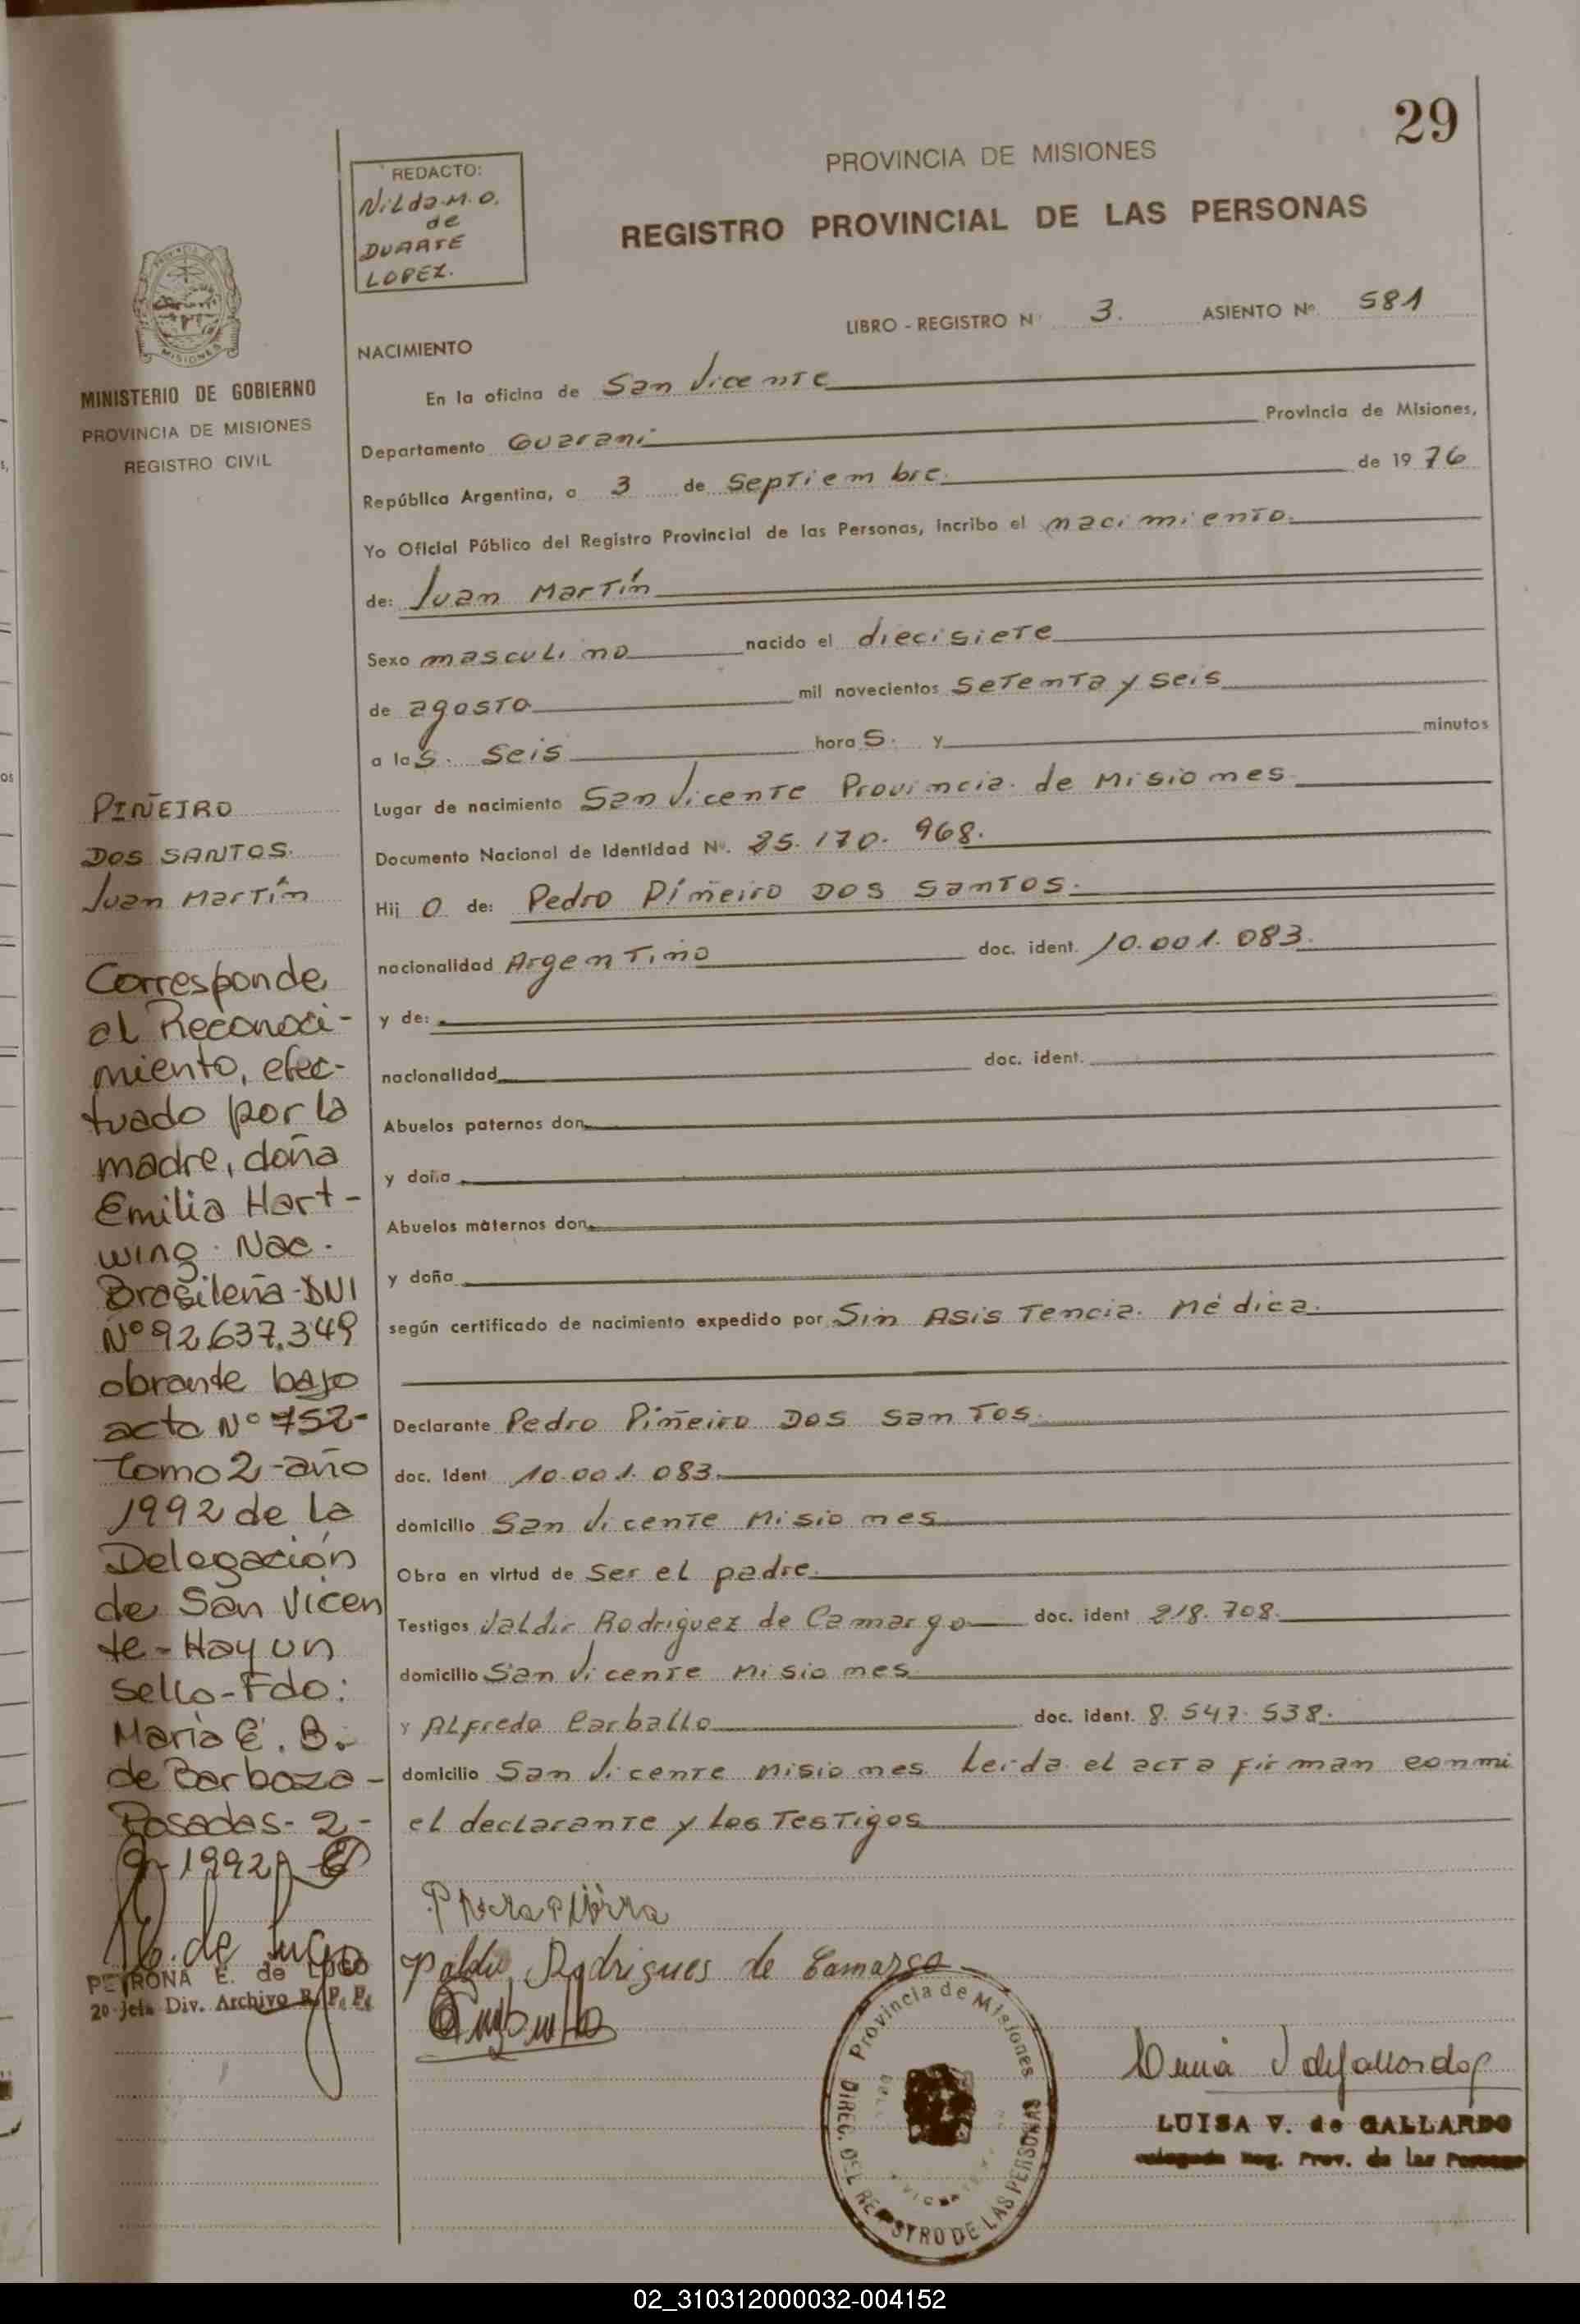 29
PROVINCIA DE MISIONES
REGISTRO PROVINCIAL DE LAS PERSONAS
REDACTO:
Nilda M. O.
de
DUARTE
LOPEZ.
LIBRO - REGISTRO N° 3. ASIENTO Nº 581
MINISTERIO DE GOBIERNO
PROVINCIA DE MISIONES
REGISTRO CIVIL
NACIMIENTO
En la oficina de San Vicente
Departamento Guarani Provincia de Misiones,
República Argentina, a 3 de Septiembre. de 19 76
Yo Oficial Público del Registro Provincial de las Personas, incribo el nacimiento.
de: Juan Martín
Sexo masculino nacido el diecisiete
de agosto mil novecientos setenta y seis
a las. seis horas. y minutos
Lugar de nacimiento San Vicente Provincia de Misiones
Documento Nacional de Identidad Nº. 25.170.968.
Hijo de: Pedro Piñeiro Dos Santos.
nacionalidad Argentino doc. ident. 10.001.083.
y de:
nacionalidad doc. ident.
Abuelos paternos don
y doña
Abuelos maternos don
y doña
según certificado de nacimiento expedido por Sin Asistencia Médica.
Declarante Pedro Piñeiro Dos Santos.
doc. Ident 10.001.083.
domicilio San Vicente Misiones
Obra en virtud de ser el padre.
Testigos Valdir Rodriguez de Camargo doc. ident 218.708.
domicilio San Vicente Misiones
y Alfredo Carballo doc. ident. 8.547.538.
domicilio San Vicente Misiones. Leída el acta firman conmi
el declarante y los testigos
PIÑEIRO
DOS SANTOS.
Juan Martín
Corresponde
al Reconoci-
miento, efec-
tuado por la
madre, doña
Emilia Hart-
wing. Nac.
Brasileña-DNI
Nº 92.637.349
obrante bajo
acta Nº 752-
Tomo 2-año
1992 de la
Delegación
de San Vicen
te-Hay un
sello-Fdo:
María E. B.
de Barboza-
Posadas-2-
9-1992
PETRONA E. de LUGO
2º Jefa Div. Archivo R. P. P.
Rodrigues de Camargo
Provincia de Misiones
DIREC. DEL REGISTRO DE LAS PERSONAS
LUISA V. de GALLARDO
Delegada Reg. Prov. de las Personas
02_310312000032-004152